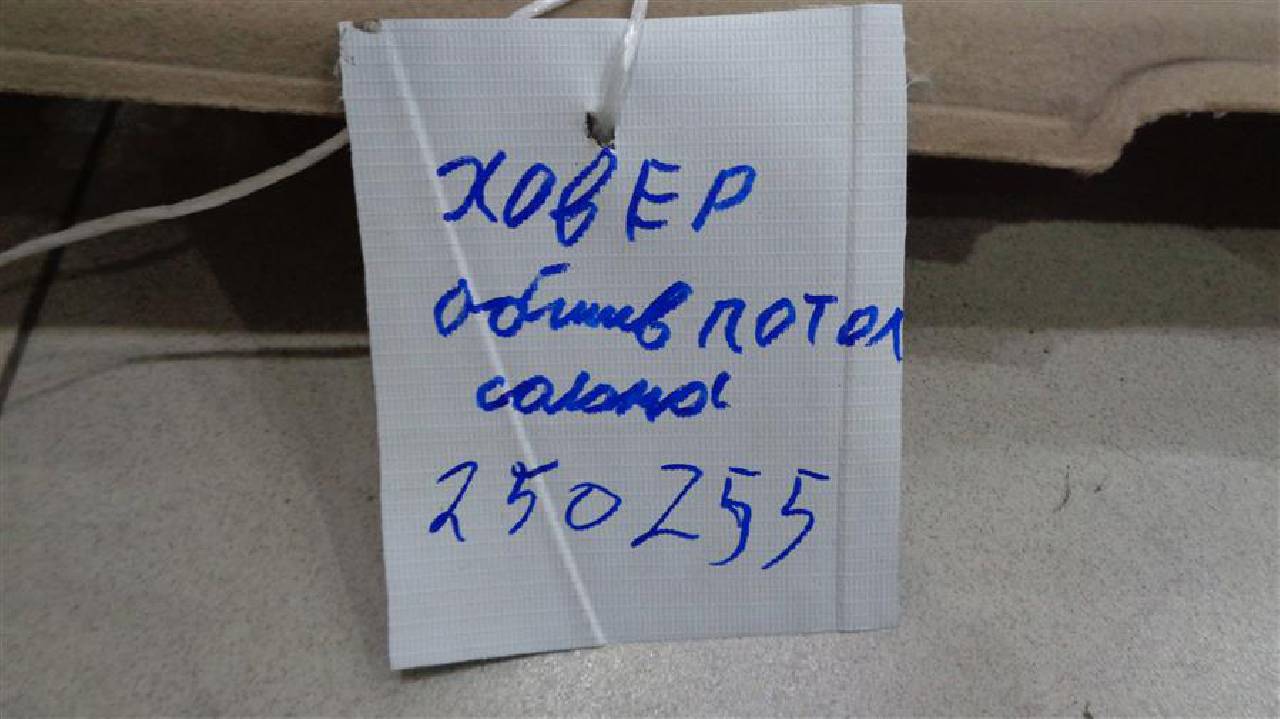 ХОВЕР
обшив ПОТОЛ
салона
250255